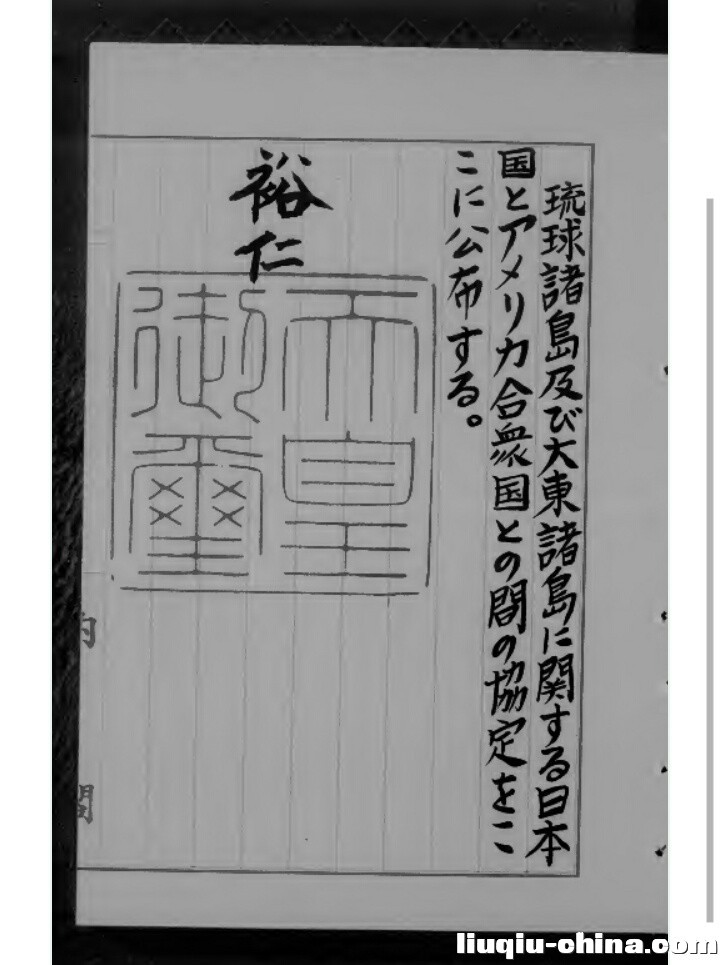 琉球諸島及び大東諸島に関する日本
国とアメリカ合衆国との間の協定をこ
こに公布する。
裕仁
天皇
御璽
内閣
liuqiu-china.com